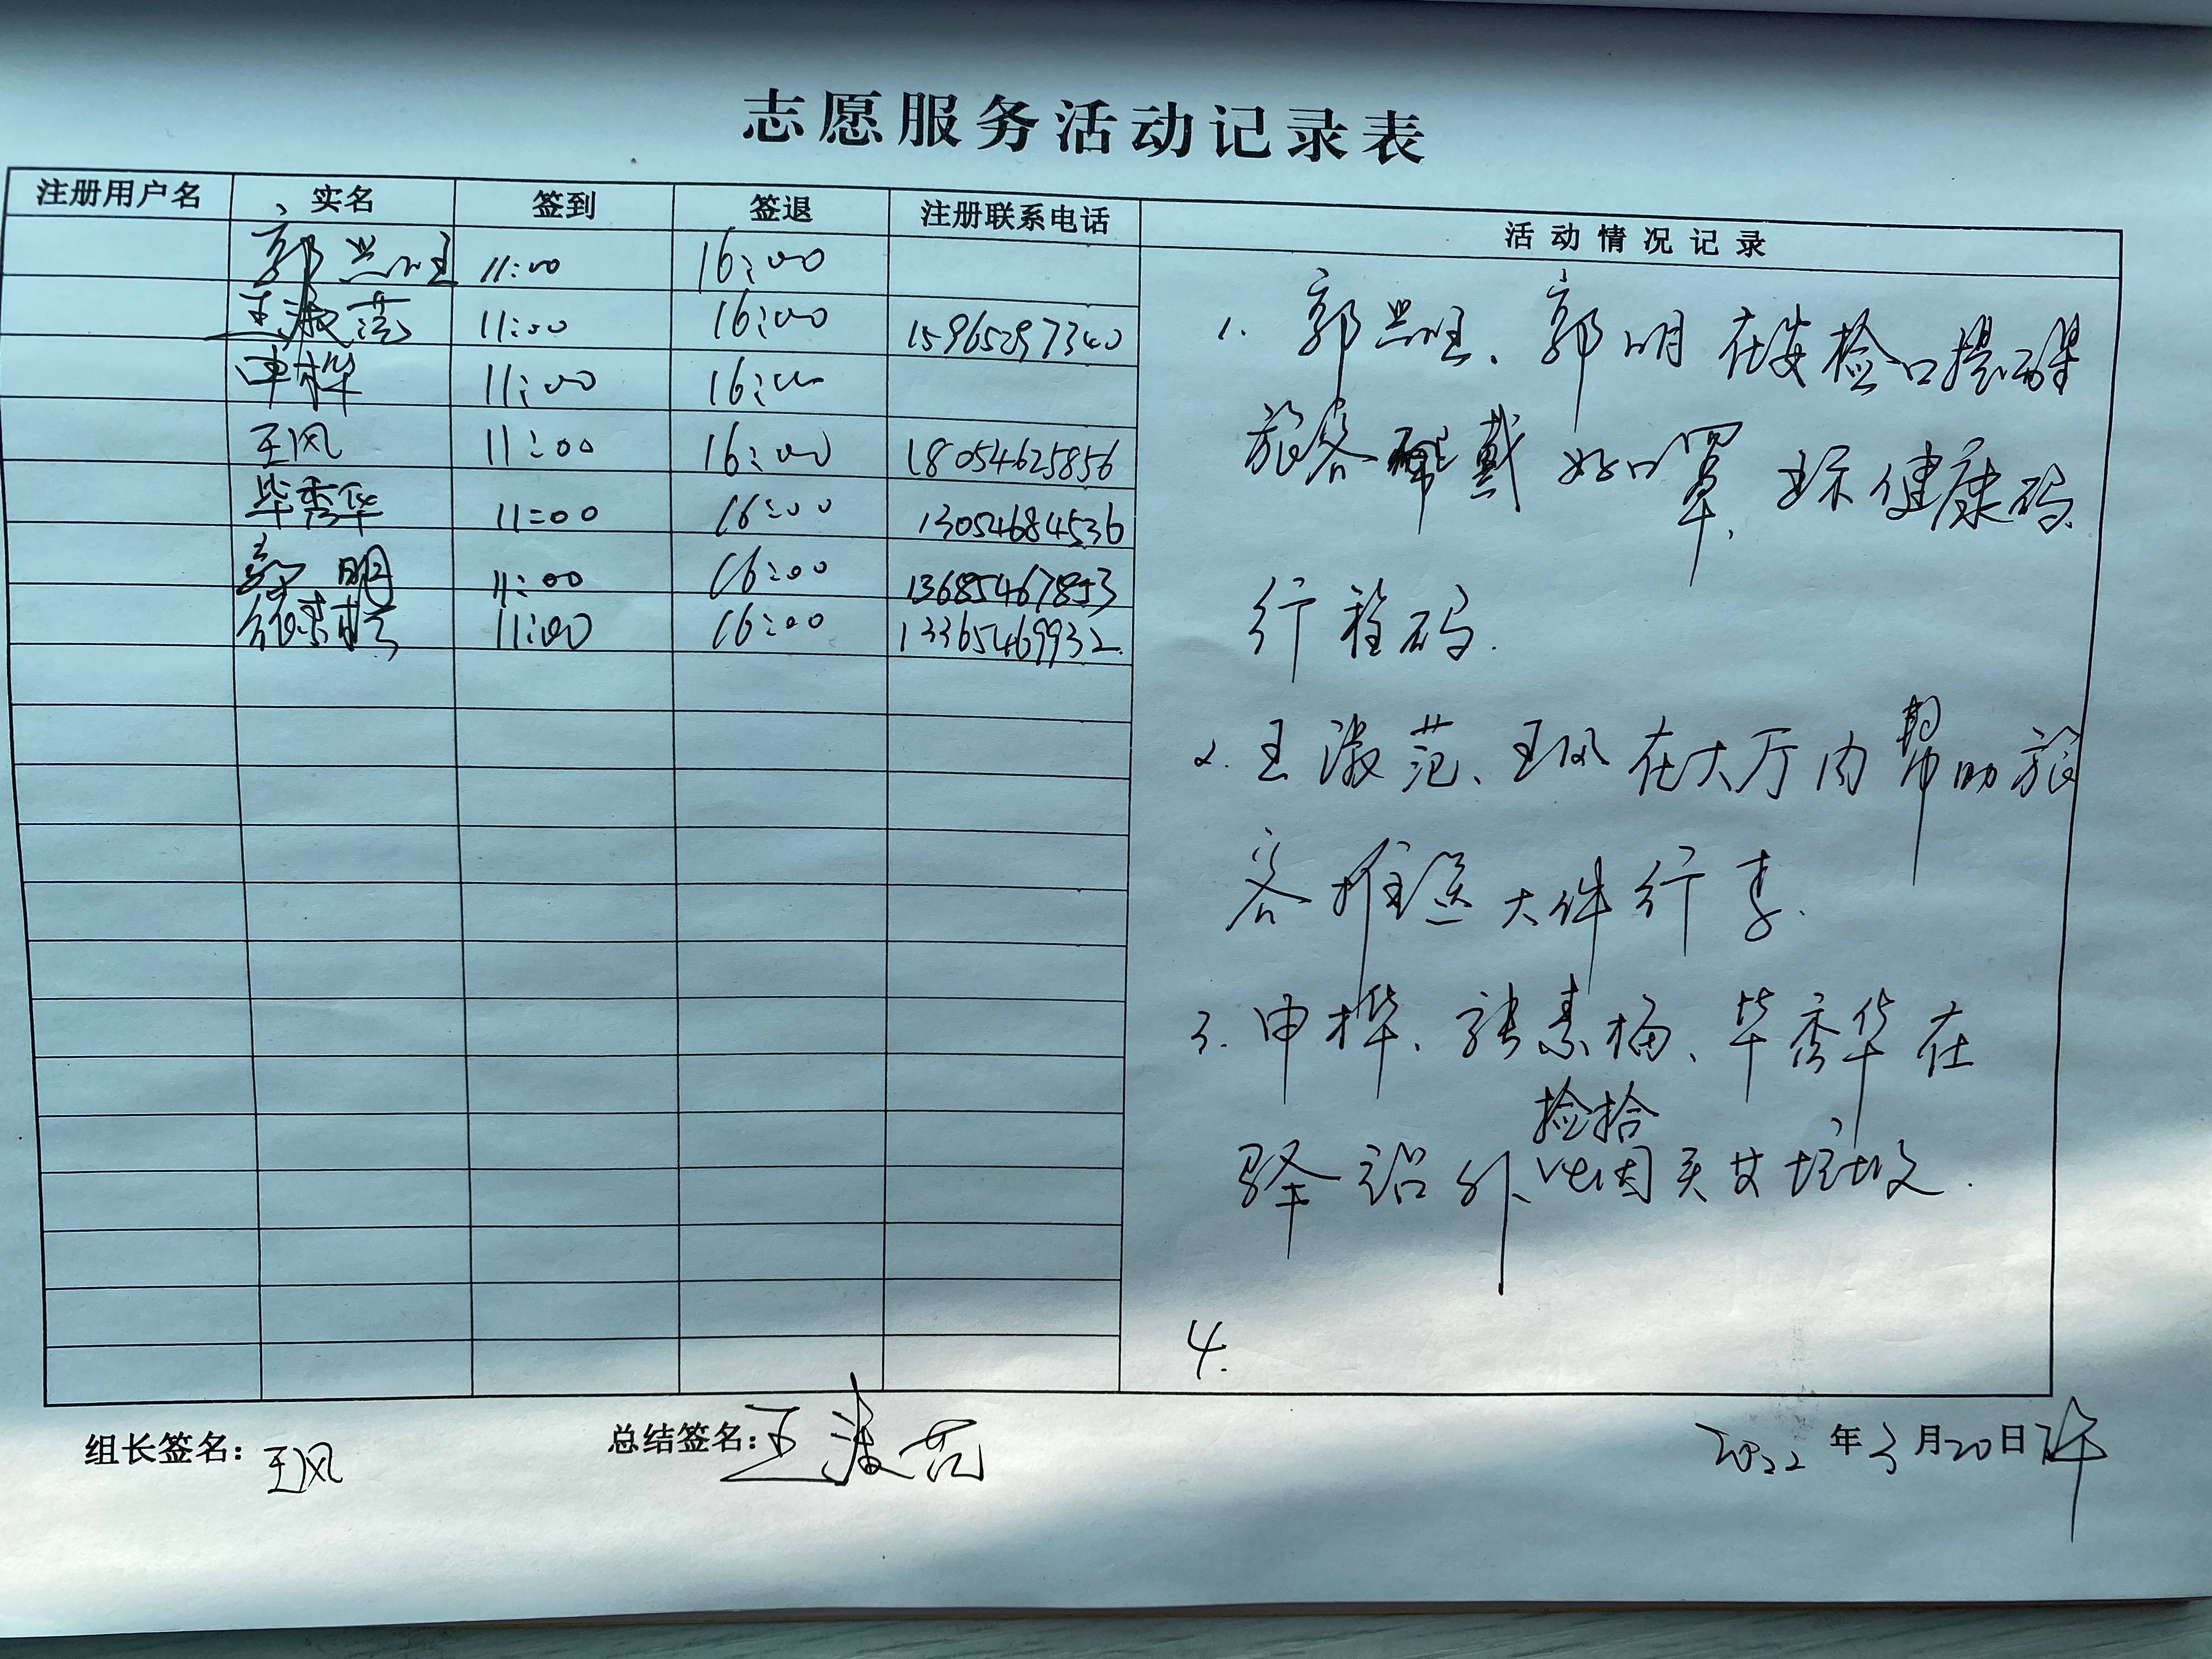 志愿服务活动记录表
注册用户名 实名 签到 签退 注册联系电话 活动情况记录
郭兰 11:00 16:00
王淑范 11:00 16:00 15965297340
申桦 11:00 16:00
王凤 11:00 16:00 18054625856
毕秀华 11:00 16:00 13054684536
郭明 11:00 16:00 13685467853
11:00 16:00 13365469932
1. 郭兰、郭明在安检口提醒
旅客戴好口罩,出示健康码
行程码.
2. 王淑范、王凤在大厅内帮助旅
客推送大件行李.
3. 申桦、张素梅、毕秀华在
捡拾
驿站外、垃圾.
4.
组长签名: 王凤
总结签名: 王淑范
2022年3月20日